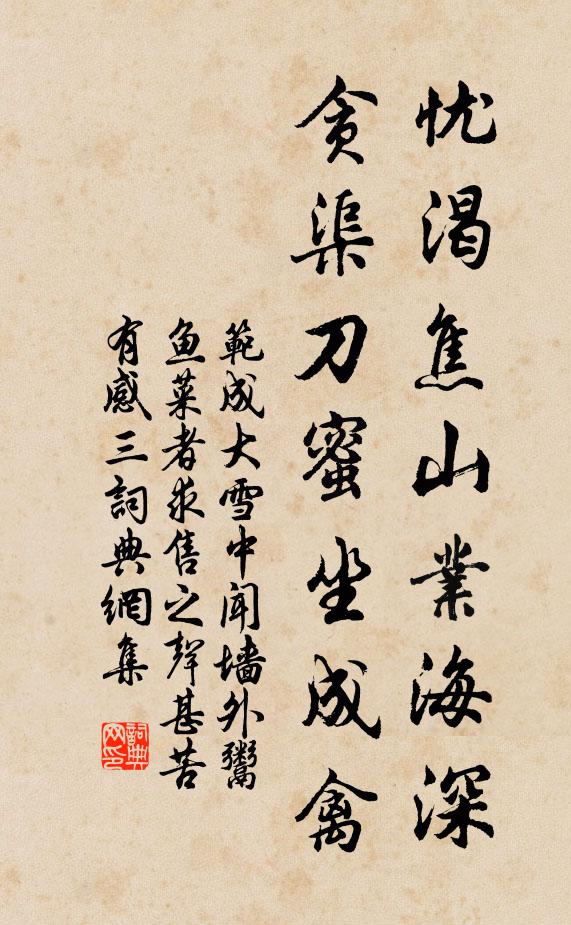 忧渴焦山業海深
貪渠刀蜜坐成禽
範成大雪中闻墙外鬻
鱼菜者求售之聲甚苦
有感三詞典網集
詞典网印